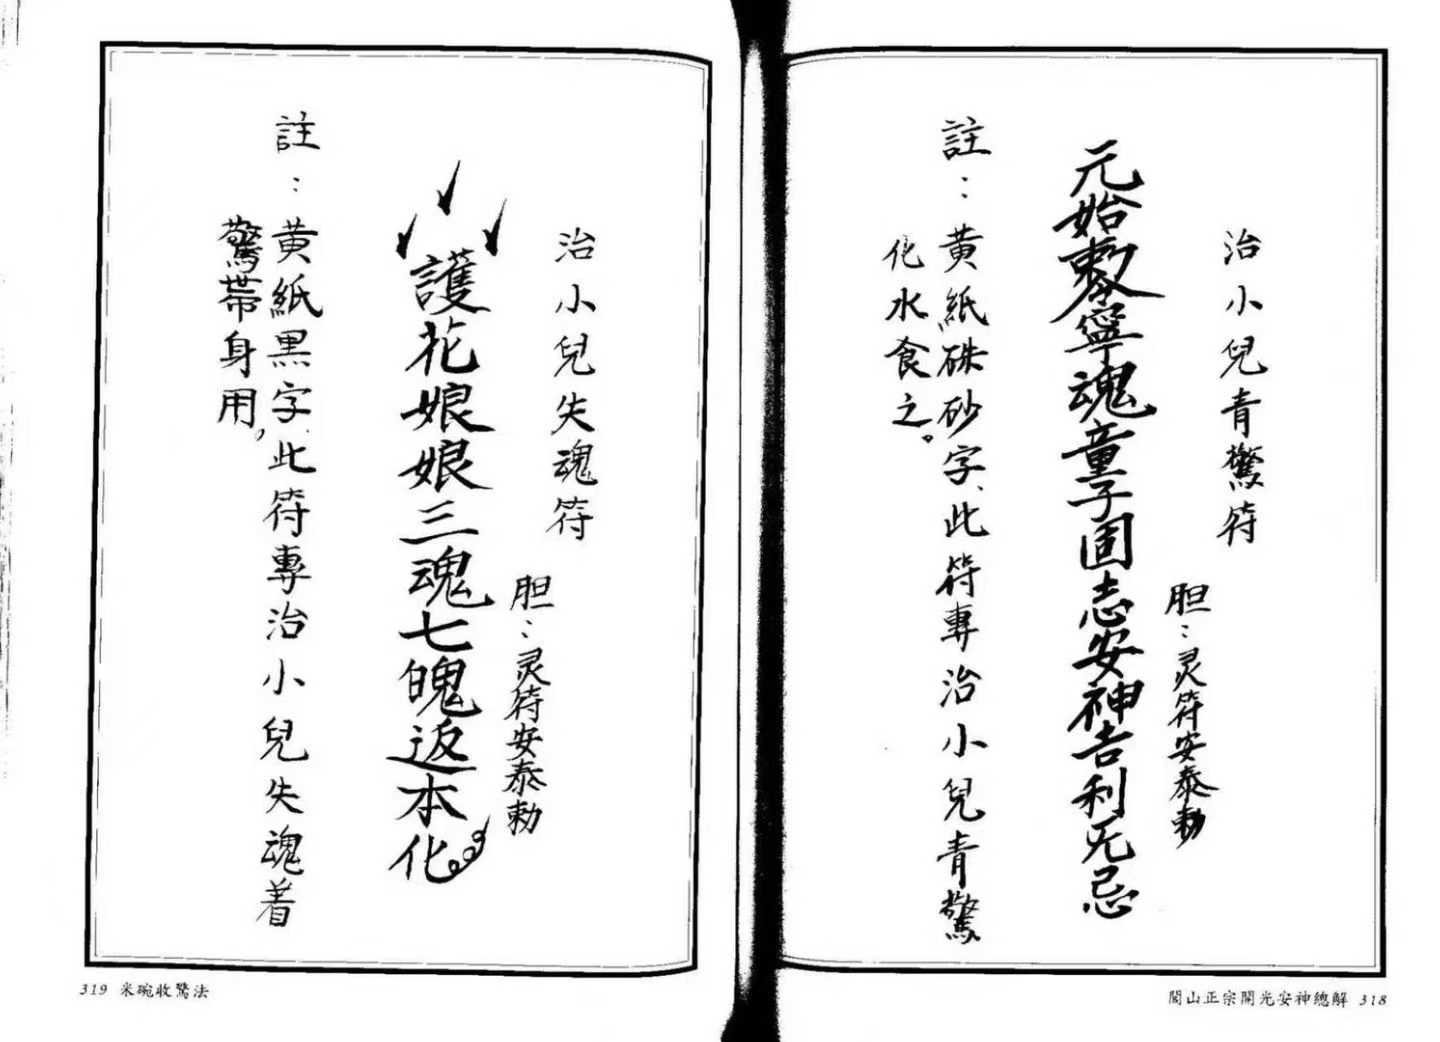 治小兒青驚符
胆：灵符安泰勅
元始敕令寧魂童子固志安神吉利无忌
註：黃紙硃砂字、此符專治小兒青驚
化水食之。
閭山正宗開光安神總解 318
治小兒失魂符
胆：灵符安泰勅
護花娘娘三魂七魄返本化
註：黃紙黑字、此符專治小兒失魂着
驚帶身用，
319 米碗收驚法